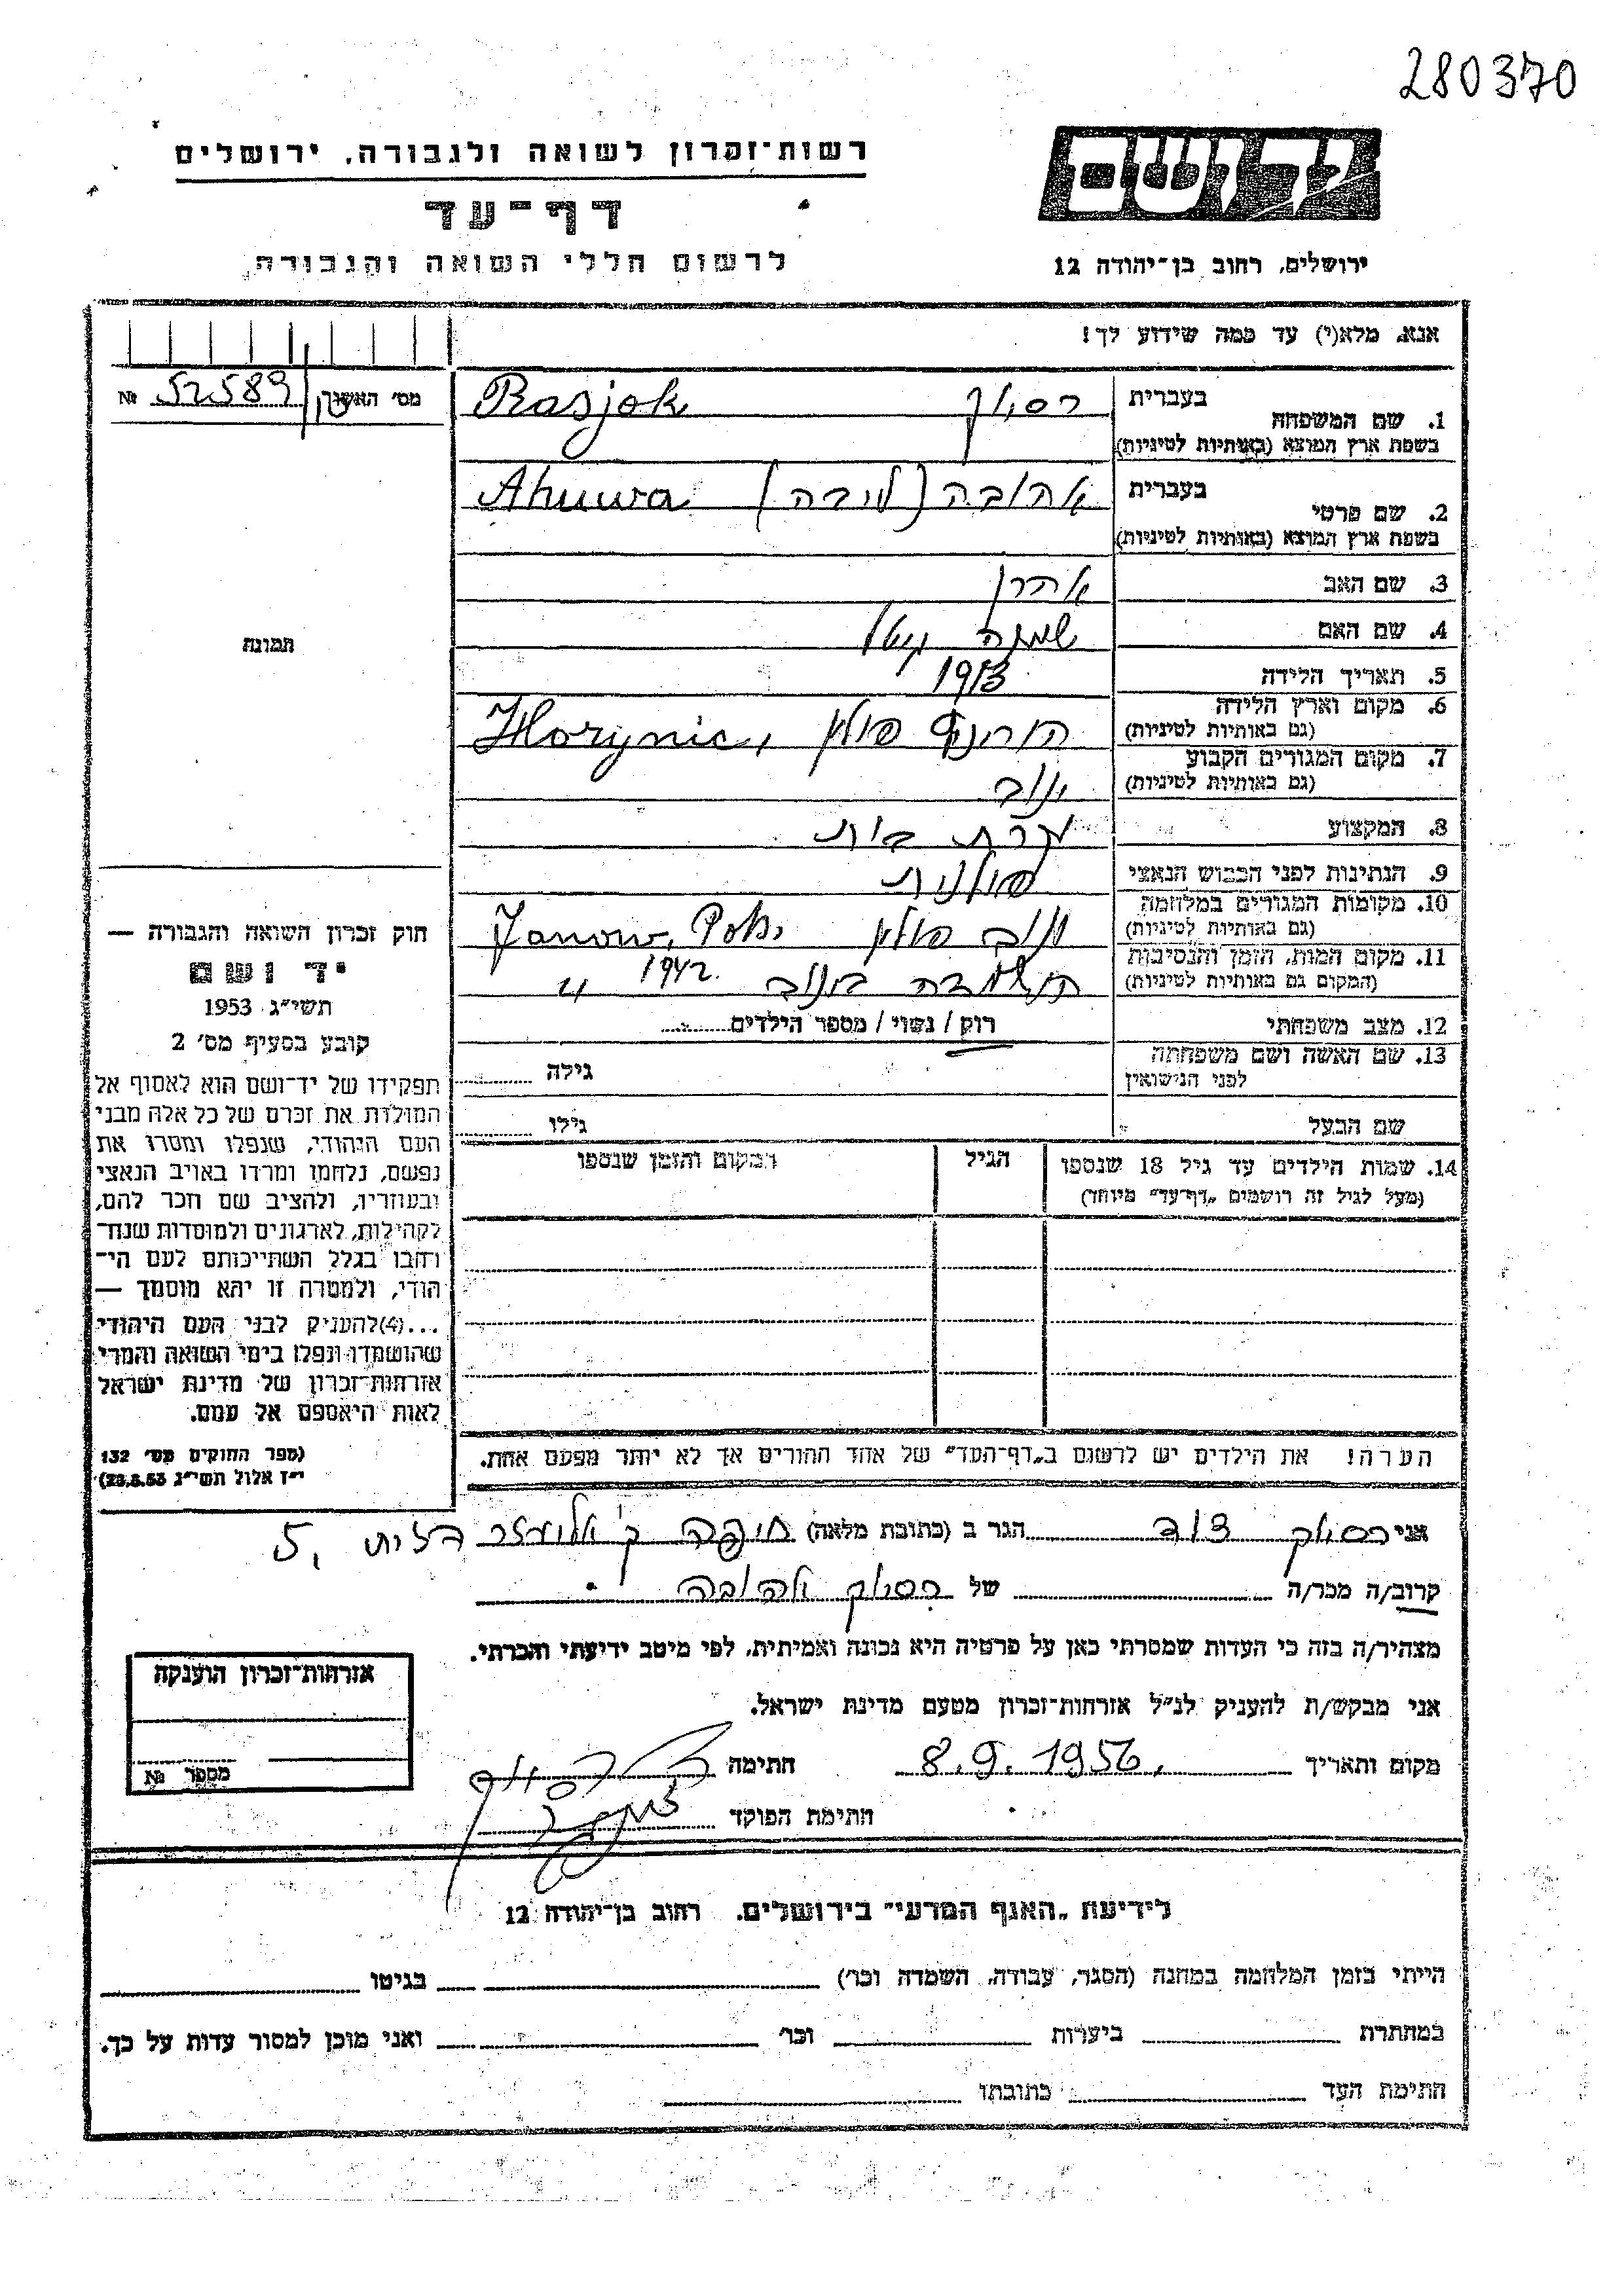 280370
יד ושם
רשות־זכרון לשואה ולגבורה, ירושלים
דף־עד
לרשום חללי השואה והגבורה
ירושלים, רחוב בן־יהודה 12
אנא, מלא(י) עד כמה שידוע לך!
מס' האשנך № 52589
1. שם המשפחה
בעברית
Rasjok
בשפת ארץ המוצא (באותיות לטיניות)
2. שם פרטי
בעברית אהובה (ליבה) Ahuwa
בשפת ארץ המוצא (באותיות לטיניות)
3. שם האב אהרן
4. שם האם
5. תאריך הלידה 1913
6. מקום וארץ הלידה פולין
(גם באותיות לטיניות)
7. מקום המגורים הקבוע ינוב
(גם באותיות לטיניות)
8. המקצוע עקרת בית
9. הנתינות לפני הכבוש הנאצי פולנית
10. מקומות המגורים במלחמה ינוב פולין Janow,
(גם באותיות לטיניות)
11. מקום המות, הזמן והנסיבות הושמדה בינוב 1942.
(המקום גם באותיות לטיניות)
12. מצב משפחתי רוק / נשוי / מספר הילדים
13. שם האשה ושם משפחתה גילה
לפני הנישואין
שם הבעל גילו
14. שמות הילדים עד גיל 18 שנספו הגיל המקום והזמן שנספו
(מעל לגיל זה רושמים „דף־עד" מיוחד)
הערה! את הילדים יש לרשום ב„דף־העד" של אחד ההורים אך לא יותר מפעם אחת.
תמונה
חוק זכרון השואה והגבורה —
יד ושם
תשי"ג 1953
קובע בסעיף מס' 2
תפקידו של יד־ושם הוא לאסוף אל
המולדת את זכרם של כל אלה מבני
העם היהודי, שנפלו ומסרו את
נפשם, נלחמו ומרדו באויב הנאצי
ובעוזריו, ולהציב שם וזכר להם,
לקהילות, לארגונים ולמוסדות שנח־
רובו בגלל השתייכותם לעם הי־
הודי, ולמטרה זו יהא מוסמך —
...(4) להעניק לבני העם היהודי
שהושמדו ונפלו בימי השואה והמרי
אזרחות־זכרון של מדינת ישראל
לאות היאספם אל עמם.
(ספר החוקים מס' 132
י"ז אלול תשי"ג 28.8.53)
אני דוד הגר ב (כתובת מלאה) חיפה 5
קרוב/ה מכר/ה של אהובה
מצהיר/ה בזה כי העדות שמסרתי כאן על פרטיה היא נכונה ואמיתית, לפי מיטב ידיעתי והכרתי.
אני מבקש/ת להעניק לנ"ל אזרחות־זכרון מטעם מדינת ישראל.
מקום ותאריך 8.9.1956, חתימה
חתימת הפוקד
אזרחות־זכרון הוענקה
מספר №
לידיעת „האגף המדעי" בירושלים, רחוב בן־יהודה 12
הייתי בזמן המלחמה במחנה (הסגר, עבודה, השמדה וכו') בגיטו
במחתרת ביערות וכו' ואני מוכן למסור עדות על כך.
חתימת העד כתובתו